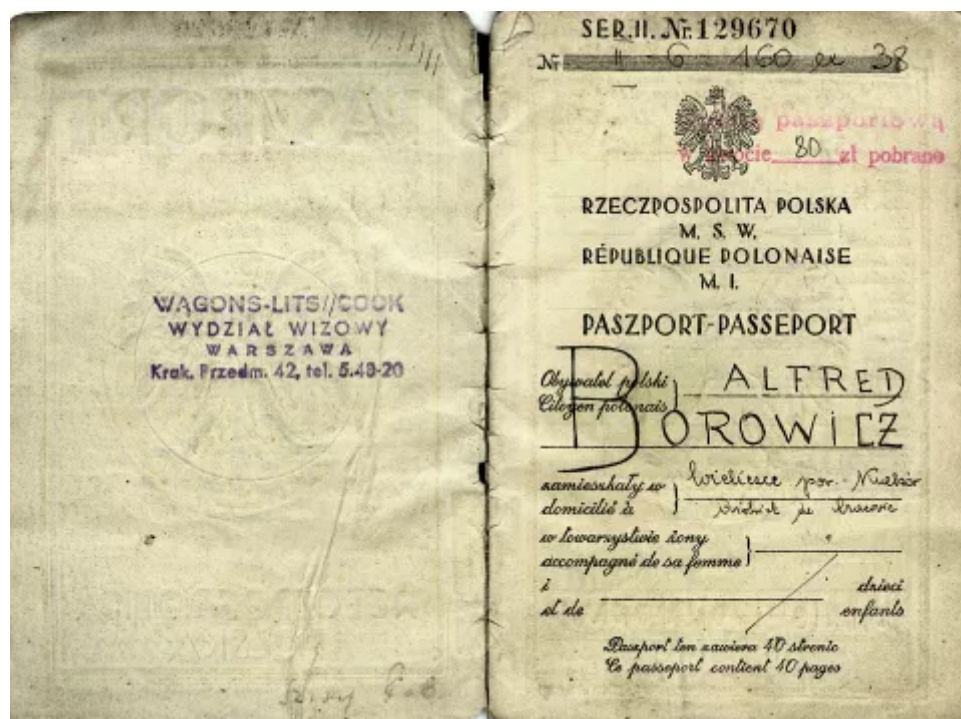 WAGONS-LITS//COOK
WYDZIAŁ WIZOWY
WARSZAWA
Krak. Przedm. 42, tel. 5.48-20
SER.II. Nr.129670
Nr II - 6 - 160 ex 38
paszportową
w kwocie 80 zł pobrano
RZECZPOSPOLITA POLSKA
M. S. W.
RÉPUBLIQUE POLONAISE
M. I.
PASZPORT-PASSEPORT
Obywatel polski
Citoyen polonais
ALFRED
BOROWICZ
zamieszkały w
domicilié à
w towarzystwie żony
accompagné de sa femme
i dzieci
et de enfants
Paszport ten zawiera 40 stronic
Ce passeport contient 40 pages